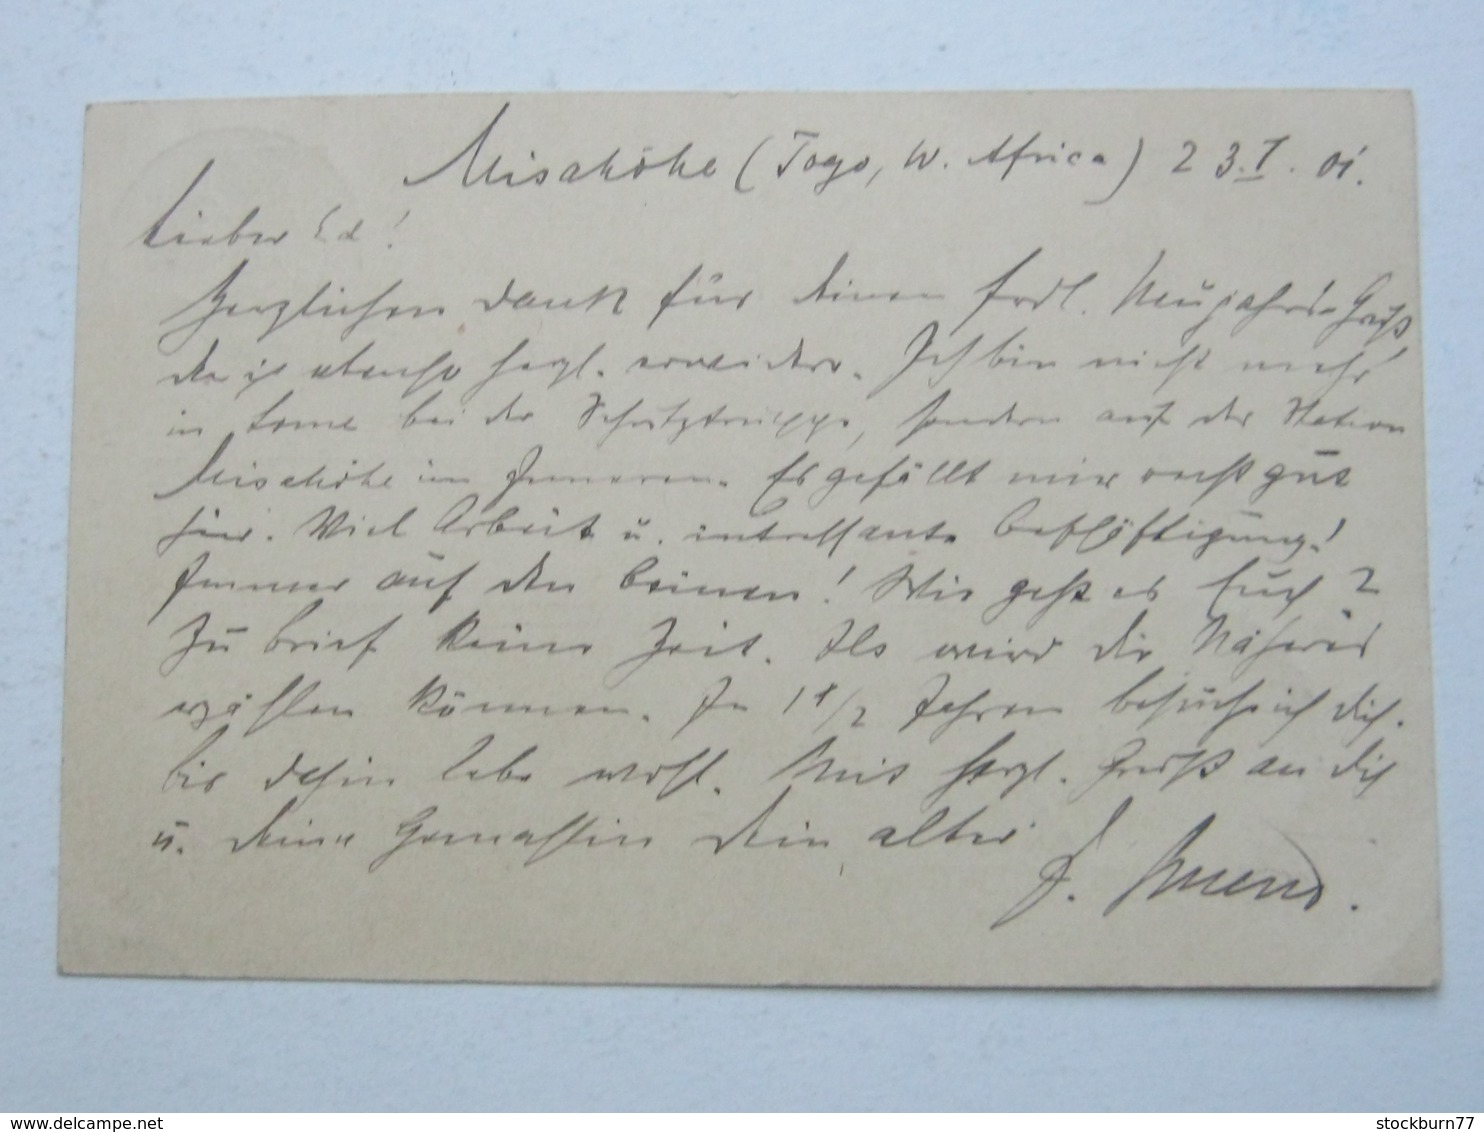 Misahöhe (Togo, W. Africa) 23.I.01.
Lieber Ed!
Herzlichen Dank für deinen frdl. Neujahrs-Gruß,
den ich ebenso herzl. erwidere. Ich bin nicht mehr
in Lome bei der Schutztruppe, sondern auf der Station
Misahöhe im Inneren. Es gefällt mir recht gut
hier. Viel Arbeit u. intressante Beschäftigung!
Immer auf den Beinen! Wie geht es Euch?
Zu Brief keine Zeit. wird dir Näheres
erzählen können. In 1 1/2 Jahren besuche ich dich.
bis dahin lebe wohl. Mit herzl. Gruß an dich
u. deine Gemahlin dein alter
F.
www.delcampe.net
stockburn77